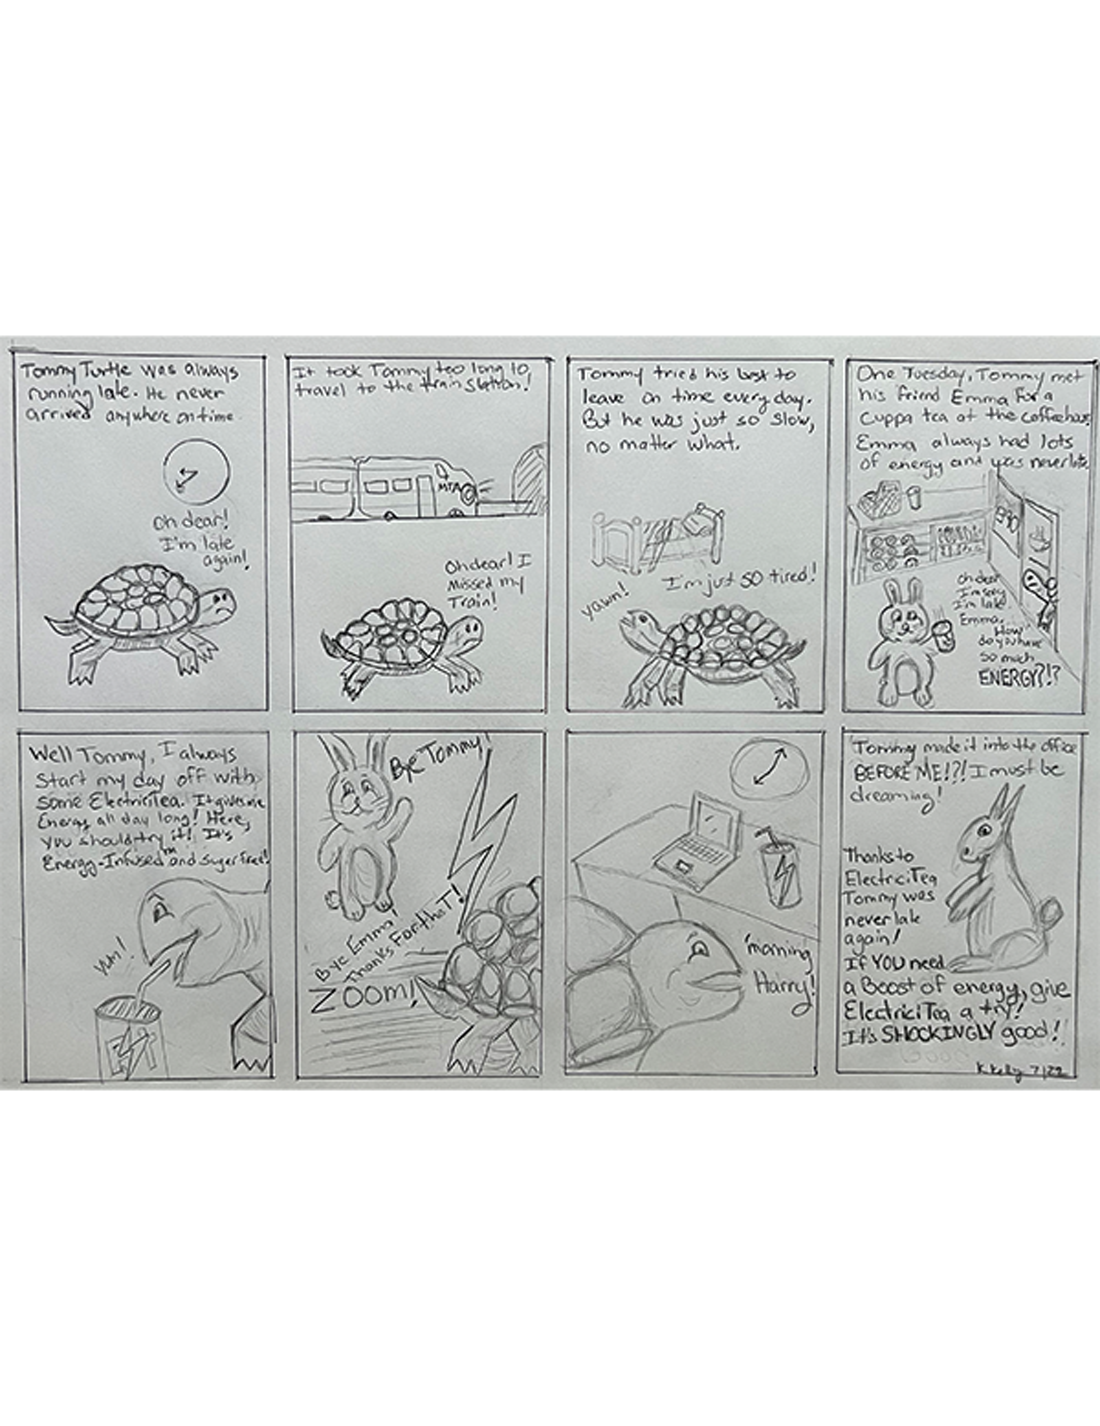 Tommy Turtle was always
running late. He never
arrived anywhere on time.
Oh dear!
I'm late
again!
It took Tommy too long to
travel to the train station!
MTA
Oh dear! I
missed my
Train!
Tommy tried his best to
leave on time every day.
But he was just so slow,
no matter what.
I'm just SO tired!
yawn!
One Tuesday, Tommy met
his friend Emma for a
cuppa tea at the coffeehouse.
Emma always had lots
of energy and was never late.
Oh dear
I'm sorry
I'm late
Emma.
How
do you have
so much
ENERGY?!?
Well Tommy, I always
start my day off with
some ElectriciTea. It gives me
Energy all day long! Here,
you should try it! It's
Energy-Infused™ and sugar free!
Yum!
Bye Tommy!
Bye Emma!
Thanks For the T!
ZOOM!
'morning
Harry!
Tommy made it into the office
BEFORE ME!?! I must be
dreaming!
Thanks to
ElectriciTea
Tommy was
never late
again!
If YOU need
a Boost of energy, give
ElectriciTea a try!
It's SHOCKINGLY good!
K Kelly 7/22